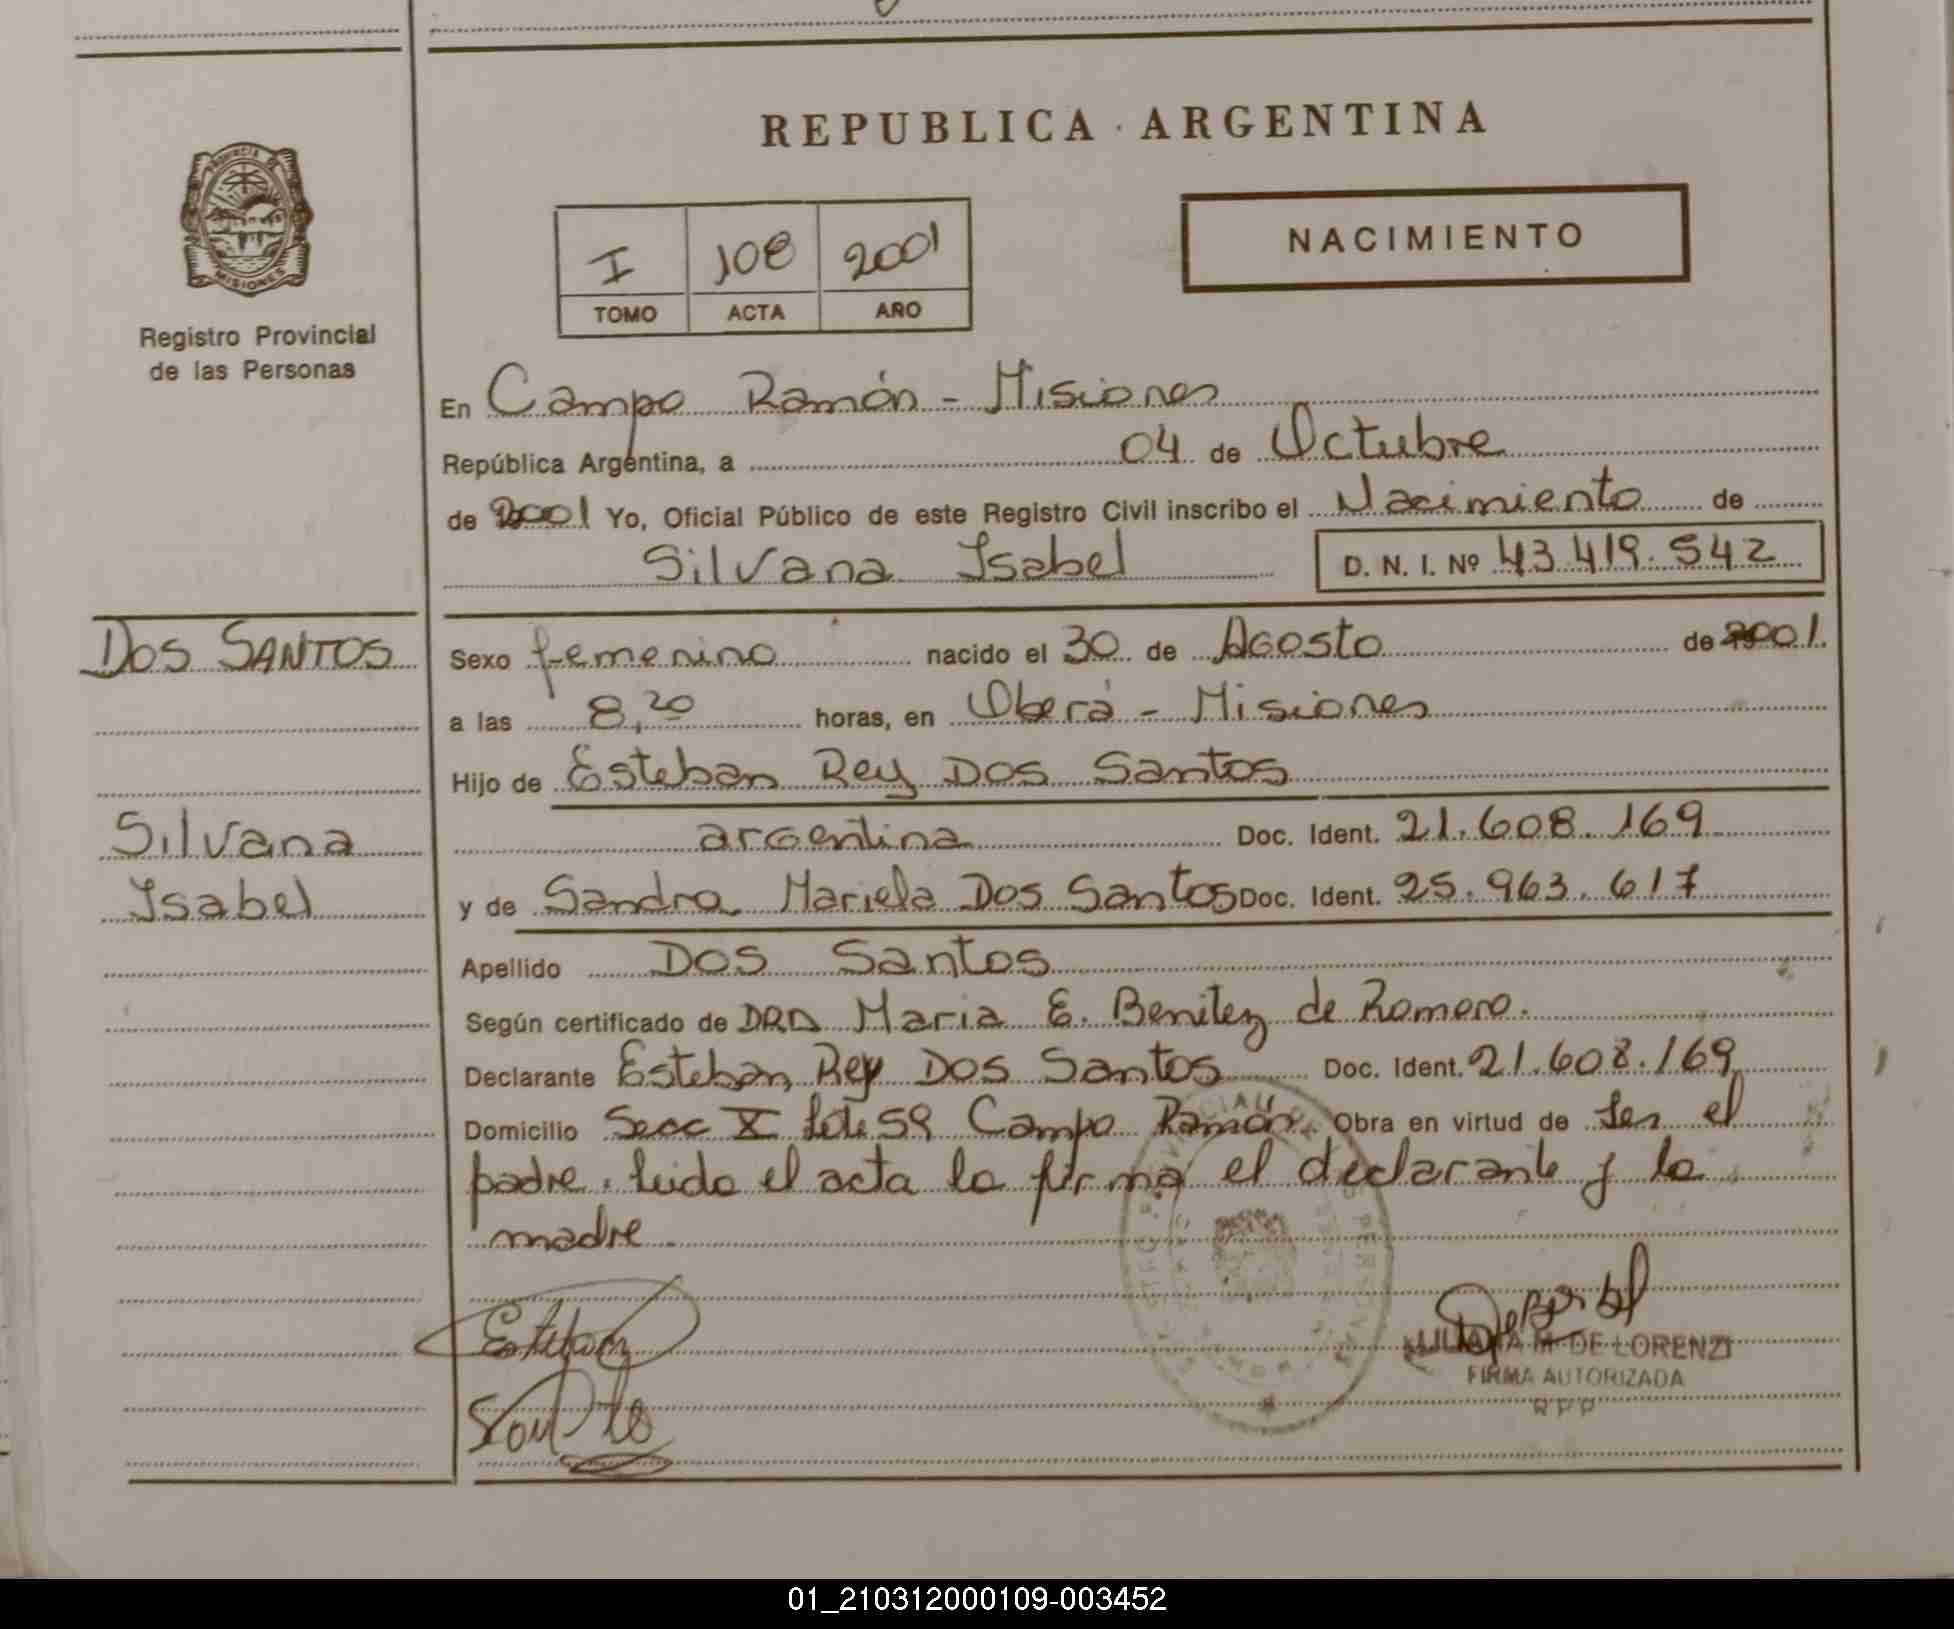 REPUBLICA ARGENTINA
PROVINCIA DE
MISIONES
Registro Provincial
de las Personas
I 108 2001
TOMO ACTA AÑO
NACIMIENTO
En Campo Ramón - Misiones
República Argentina, a 04 de Octubre
de 2001 Yo, Oficial Público de este Registro Civil inscribo el Nacimiento de
Silvana Isabel D. N. I. Nº 43.419.542
DOS SANTOS
Silvana
Isabel
Sexo femenino nacido el 30 de Agosto de 2001.
a las 8,20 horas, en Oberá - Misiones
Hijo de Esteban Rey Dos Santos
argentina Doc. Ident. 21.608.169
y de Sandra Mariela Dos Santos Doc. Ident. 25.963.617
Apellido Dos Santos
Según certificado de DRA Maria E. Benitez de Romero.
Declarante Esteban Rey Dos Santos Doc. Ident. 21.608.169
Domicilio Secc X Lote 59 Campo Ramón. Obra en virtud de ser el
padre. leido el acta la firma el declarante y la
madre.
Esteban
LILIANA M. DE LORENZI
FIRMA AUTORIZADA
R P P
01_210312000109-003452